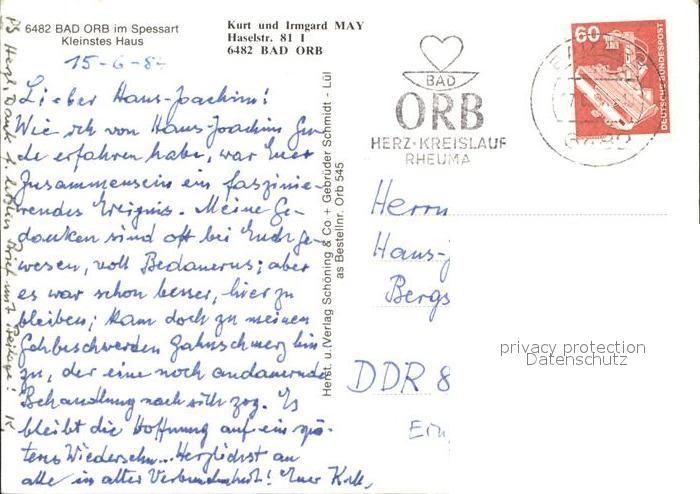 6482 BAD ORB im Spessart
Kleinstes Haus
Kurt und Irmgard MAY
Haselstr. 81 I
6482 BAD ORB
15-6-8
Lieber Hans-Joachim!
Wie ich von Hans-Joachim Gun-
de erfahren habe, war Euer
Zusammensein ein faszinie-
rendes Ereignis. Meine Ge-
danken sind oft bei Euch ge-
wesen, voll Bedauerns; aber
es war schon besser, hier zu
bleiben; kam doch zu meinen
Gehbeschwerden Zahnschmerz hin-
zu, der eine noch andauernde
Behandlung nach sich zog. Es
bleibt die Hoffnung auf ein spä-
teres Wiedersehn... Herzlichst an
alle in alter Verbundenheit! Euer Kurt,
PS Herzl. Dank f. letzten Brief mit Beilage! K.
Herst. u. Verlag Schöning & Co + Gebrüder Schmidt - Lü
as Bestellnr. Orb 545
BAD
ORB
HERZ·KREISLAUF
RHEUMA
6482
60
DEUTSCHE BUNDESPOST
Herrn
Hans-J
Bergs
DDR 8
Ein
privacy protection
Datenschutz